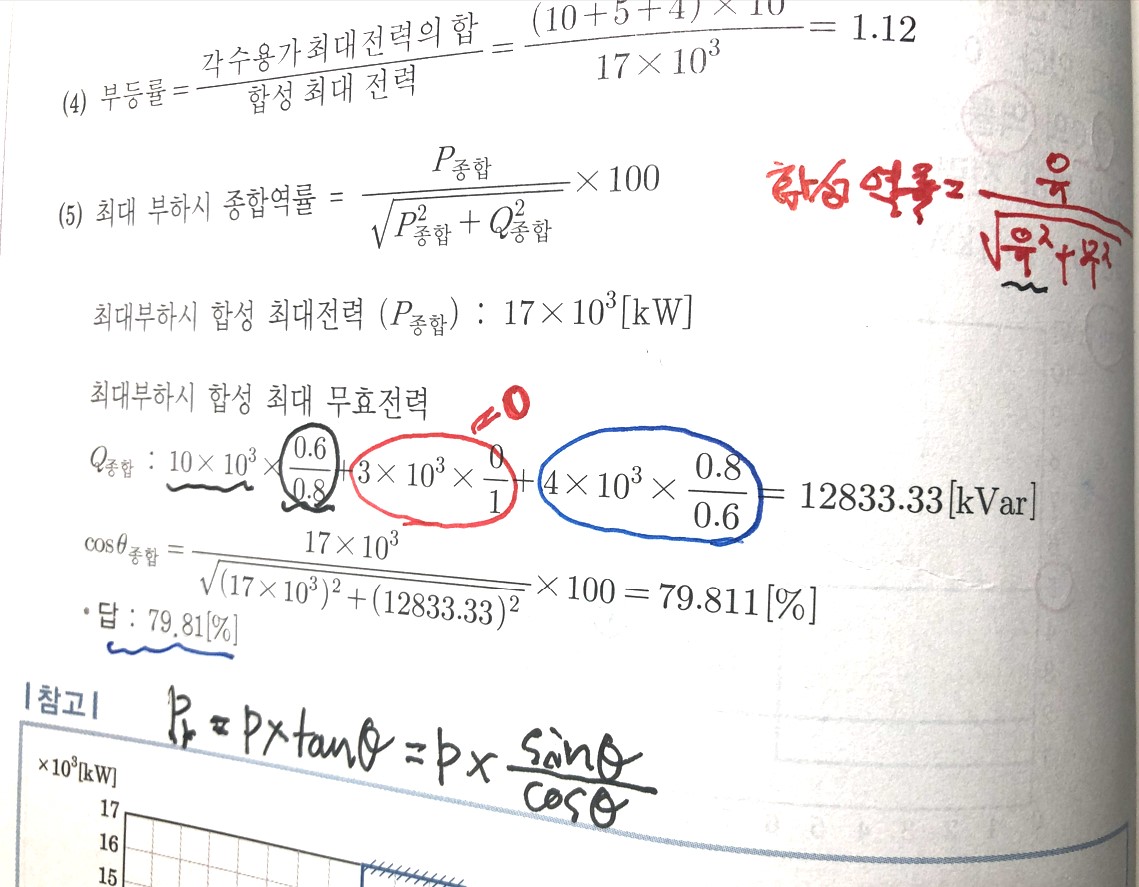 (4) 부등률 = 각수용가최대전력의 합 / 합성 최대 전력 = (10+5+4)×10 / 17×10³ = 1.12
(5) 최대 부하시 종합역률 = P종합 / √(P²종합 + Q²종합) × 100
합성 역률 = 유 / √(유² + 무²)
최대부하시 합성 최대전력 (P종합) : 17×10³[kW]
최대부하시 합성 최대 무효전력
= 0
Q종합 : 10×10³ × 0.6/0.8 + 3×10³ × 0/1 + 4×10³ × 0.8/0.6 = 12833.33[kVar]
cosθ종합 = 17×10³ / √((17×10³)² + (12833.33)²) × 100 = 79.811[%]
• 답 : 79.81[%]
|참고|
Pr = P×tanθ = P× sinθ/cosθ
×10³[kW]
17
16
15